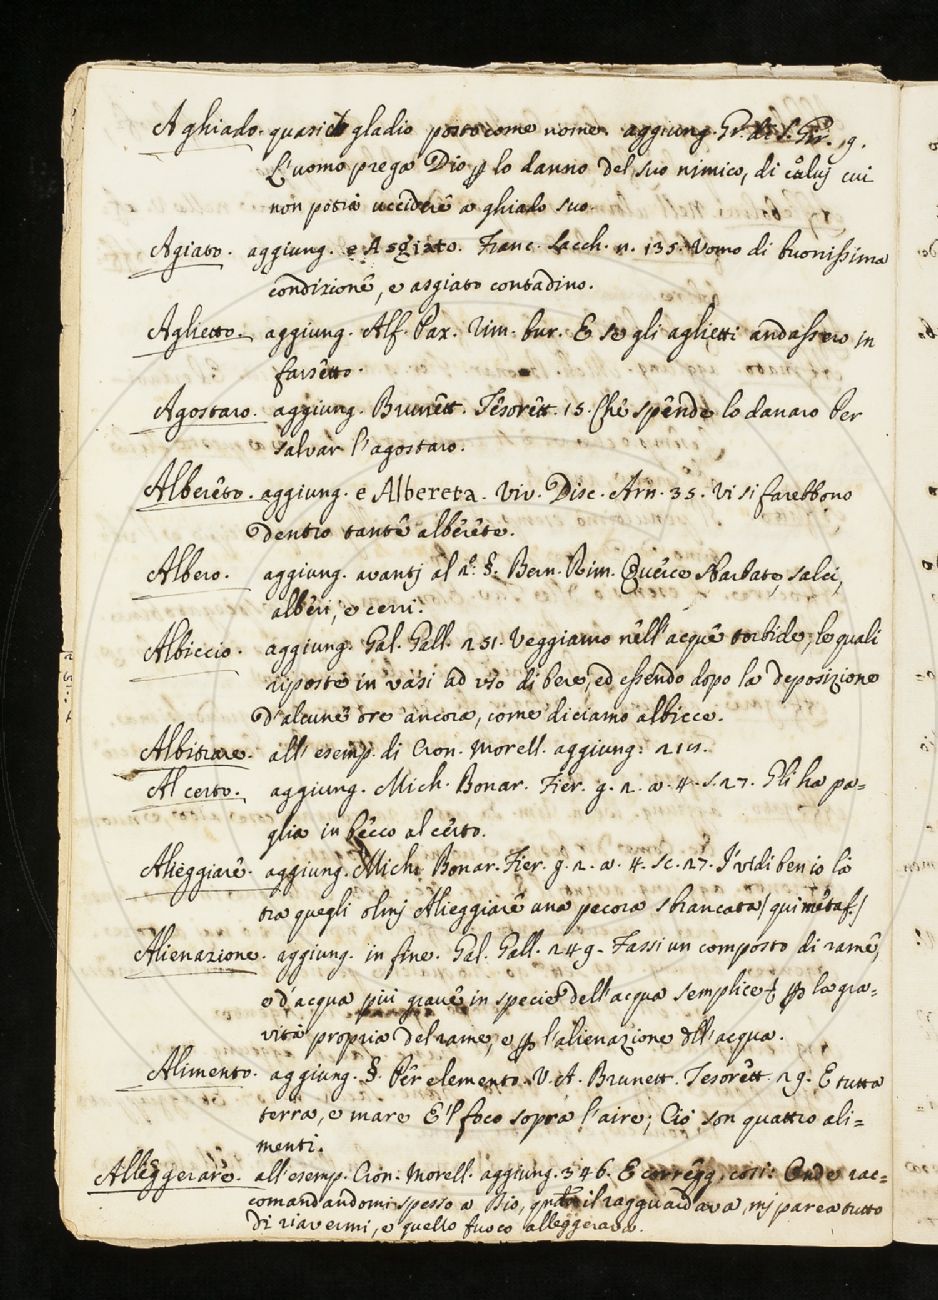 Aghiado. quasi gladio posto come nome. aggiung. Gr. di S. Gir. 19.
L'uomo prega Dio p lo danno del suo nimico, di colui cui
non potià uccidere a ghiado suo.
Agiato. aggiung. e Asgiato. Franc. Sacch. n. 135. Uomo di buonissima
condizione, e asgiato contadino.
Aglietto. aggiung. Alf. Paz. rim. bur. E se gli aglietti andassero in
farsetto.
Agostaro. aggiung. Brunett. Tesorett. 15. Chè spende lo danaro Per
salvar l'agostaro.
Albereto. aggiung. e Albereta. Viv. Disc. Arn. 35. Vi si farebbono
dentro tante alberete.
Albero. aggiung. avantj al 2.° §. Bern. Rim. Querce sbarbate, salci,
alberi, e cerri.
Albiccio. aggiung. Gal. Gall. 251. Veggiamo nell'acque torbide, le quali
riposte in vasi ad uso di bere, ed essendo dopo la deposizione
d'alcune ore ancora, come diciamo albicce.
Albitrare. all'esemp. di Cron. Morell. aggiung: 215.
Al certo. aggiung. Mich. Bonar. Fier. g. 2. a. 4. s. 27. Gli ha pa=
glia in becco al certo.
Alieggiare. aggiung. Mich. Bonar. Fier. g. 2. a. 4. sc. 27. I' vidi ben io là
tra quegli olmj Alieggiare una pecora sbrancata (qui metaf.)
Alienazione. aggiung. in fine. Gal. Gall. 249. Fassi un composto di rame,
e d'acqua più grave in specie dell'acqua semplice p la gra=
vità propria del rame, e p l'alienazione dll'acqua.
Alimento. aggiung. §. Per elemento. V. A. Brunett. Tesorett. 29. E tutta
terra, e mare E'l foco sopra l'aire; Ciò son quattro ali=
menti.
Alleggerare. all'esemp. Cron. Morell. aggiung. 346. E corregg. così: Onde rac=
comandandomi spesso a Dio, il ragguardava, mj parea tutto
di riavermi, e quello fuoco alleggerava.